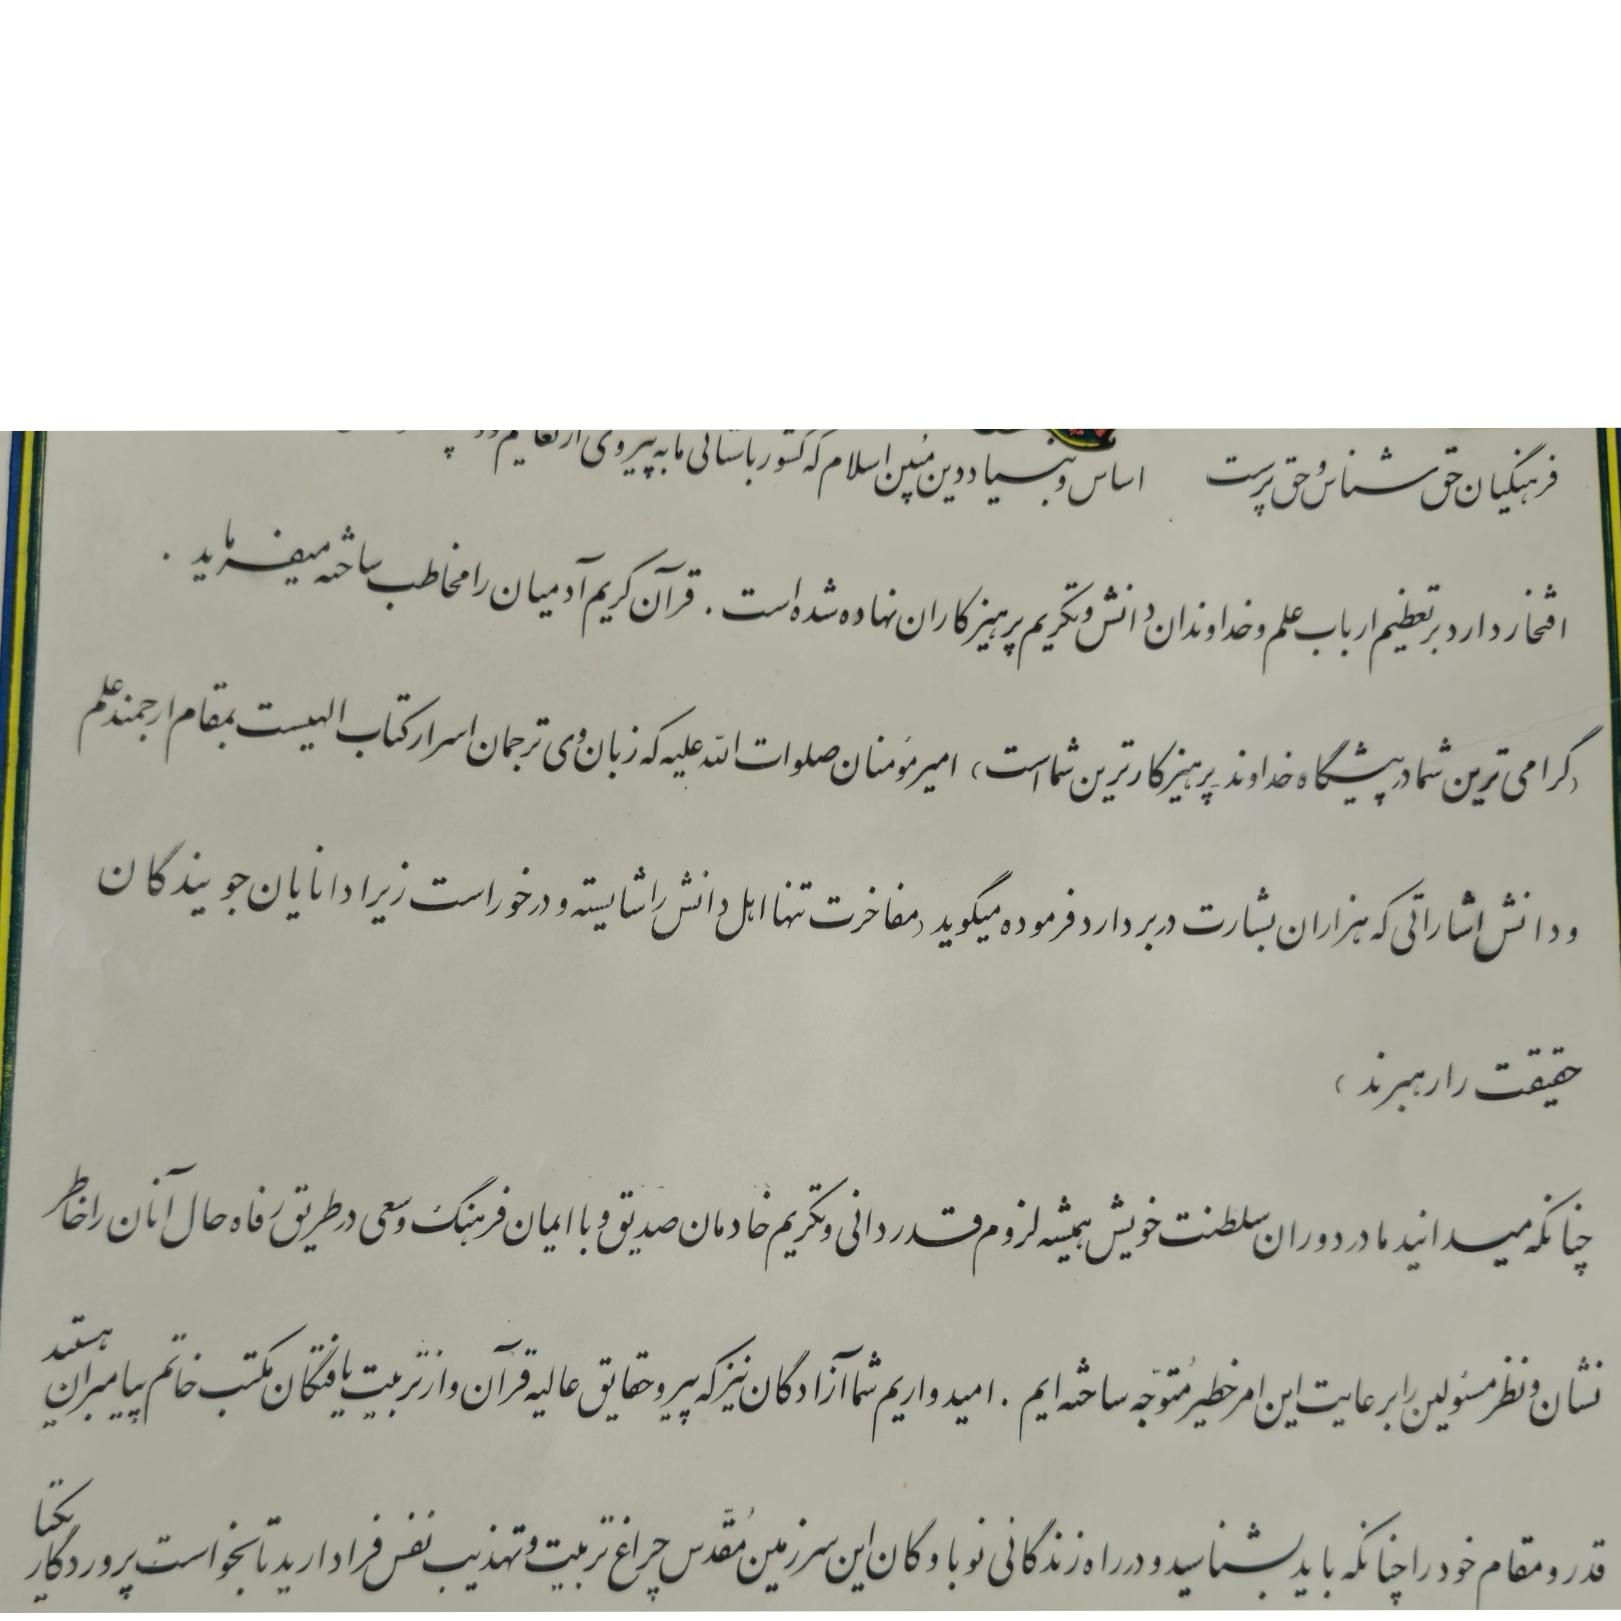 فرهنگیان حق شناس و حق پرست اساس و بنیاد دین مُبین اسلام که کشور باستانی ما به پیروی از تعالیم
افتخار دارد بر تعظیم ارباب علم و خداوندان دانش و تکریم پرهیزکاران نهاده شده است . قرآن کریم آدمیان را مخاطب ساخته میفرماید .
(گرامی ترین شما در پیشگاه خداوند پرهیزکارترین شما است) امیر مؤمنان صلوات الله علیه که زبان وی ترجمان اسرار کتاب الهیست بمقام ارجمند علم
و دانش اشاراتی که هزاران بشارت در بر دارد فرموده میگوید (مفاخرت تنها اهل دانش را شایسته و در خور است زیرا دانایان جویندگان
حقیقت را رهبرند )
چنانکه میدانید ما در دوران سلطنت خویش همیشه لزوم قدردانی و تکریم خادمان صدیق و با ایمان فرهنگ و سعی در طریق رفاه حال آنان را خاطر
نشان و نظر مسئولین را برعایت این امر خطیر مُتوجّه ساخته ایم . امیدواریم شما آزادگان نیز که پیرو حقایق عالیه قرآن و از تربیت یافتگان مکتب خاتم پیامبران هستید
قدر و مقام خود را چنانکه باید بشناسید و در راه زندگانی نوباوگان این سرزمین مُقدّس چراغ تربیت و تهذیب نفس فرا دارید تا بخواست پروردگار یکتا